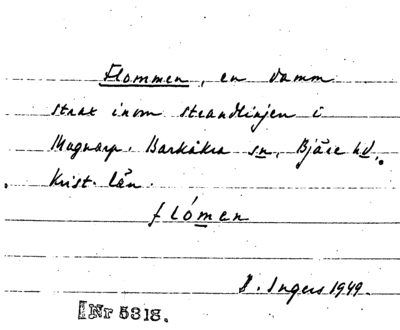 Flommen, en damm
strax inom strandlinjen i
Magnarp. Barkåkra sn, Bjäre hd,
Krist. län.
flómen
I. Ingers 1949.
Nr 5818.